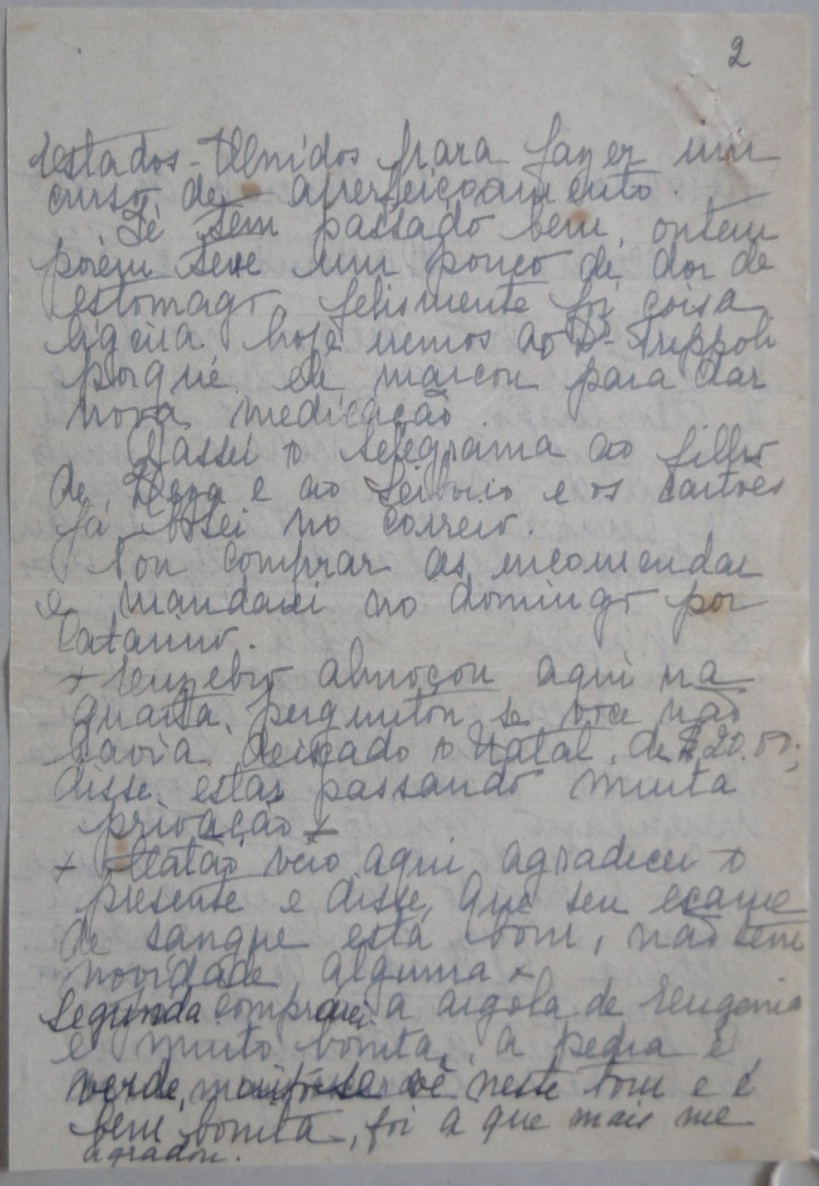 2
Estados-Unidos para fazer um
curso de aperfeiçoamento.
Zé tem passado bem, ontem
porém teve um pouco de dor de
estomago, felismente foi coisa
ligeira. hoje iremos ao Dr.
porque ele marcou para dar
nova medicação.
Passei o telegrama ao filho
de e ao e os cartões
já botei no correio.
Vou comprar as encomendas
e mandarei no domingo por
Catarino.
+ Euzebio almoçou aqui na
quarta, perguntou se voce não
havia deixado o Natal, de $20.00;
disse estar passando muita
privação +
+ Natao veio aqui agradecer o
presente e disse que seu exame
de sangue está bom, não tem
novidade alguma +
Segunda comprarei a argola de Eugenia
é muito bonita, a pedra é
verde, vê neste tom e é
bem bonita, foi a que mais me
agradou.